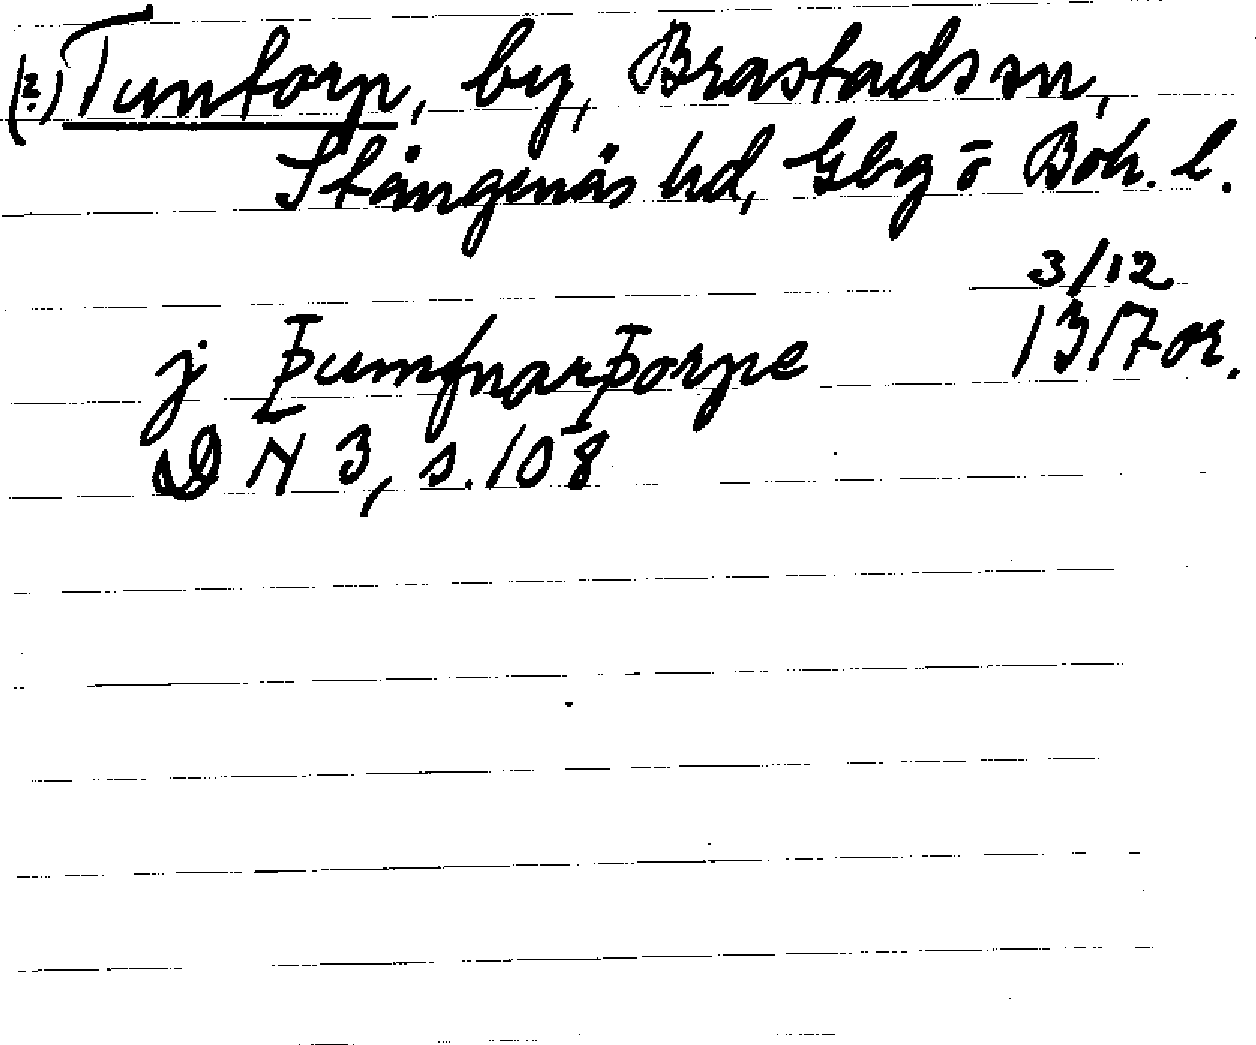 (?) Tuntorp, by, Brastads sn,
Stångenäs hd, Gbg ō Boh. l.
3/12
j Þumfnarþorpe 1317 or.
DN 3, s. 108